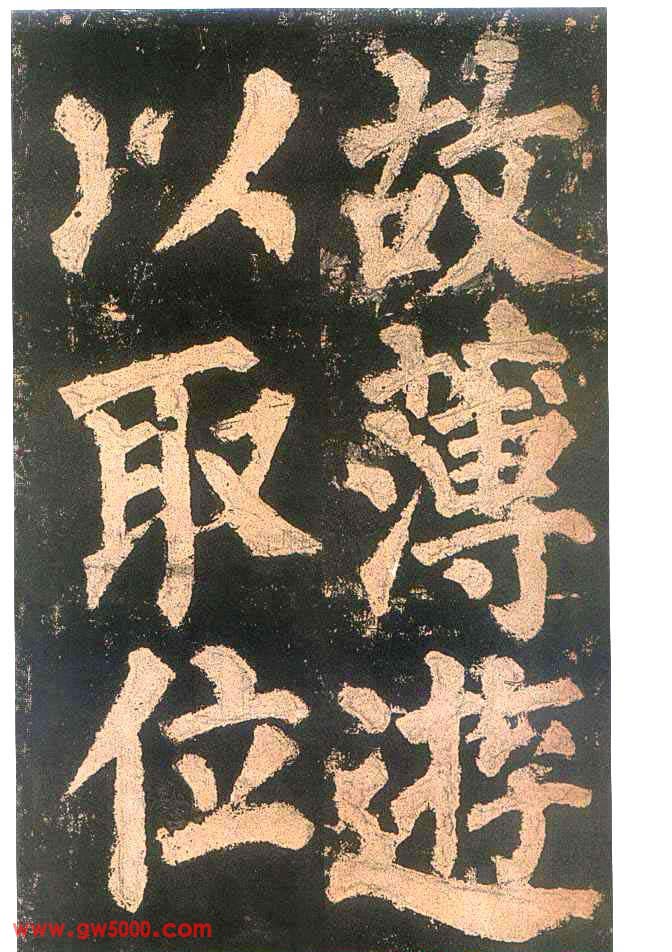 故薄遊
以取位
www.gw5000.com